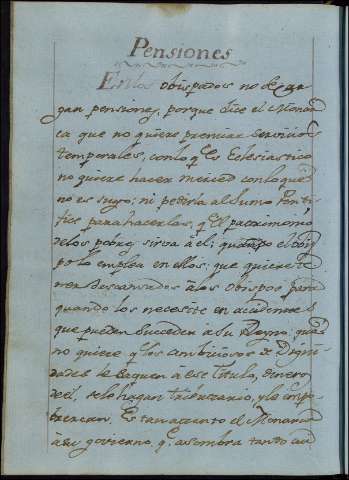 Pensiones
En los obispados no se car
gan pensiones, porque dice el Monar
ca que no quiere premiar servicios
temporales, con lo q.e es Eclesiastico
no quiere hacer merced con lo que
no es suyo; ni pediria al Sumo Ponti
fice para hacerlas, q.e el patrimonio
de los pobres sirva à el; quando el obis
po lo emplea en ellos; que quiere te
ner descansados à los obispos para
quando los necesite en accidentes
que pueden suceder a su Reyno, que
no quiere q.e los ambiciosos de Digni
dades le saquen à ese titulo, dinero
de el, se lo hagan tributario, y lo empo
brezcan. Es tan atento el Monarca
à su govierno, q.e asombra tanto